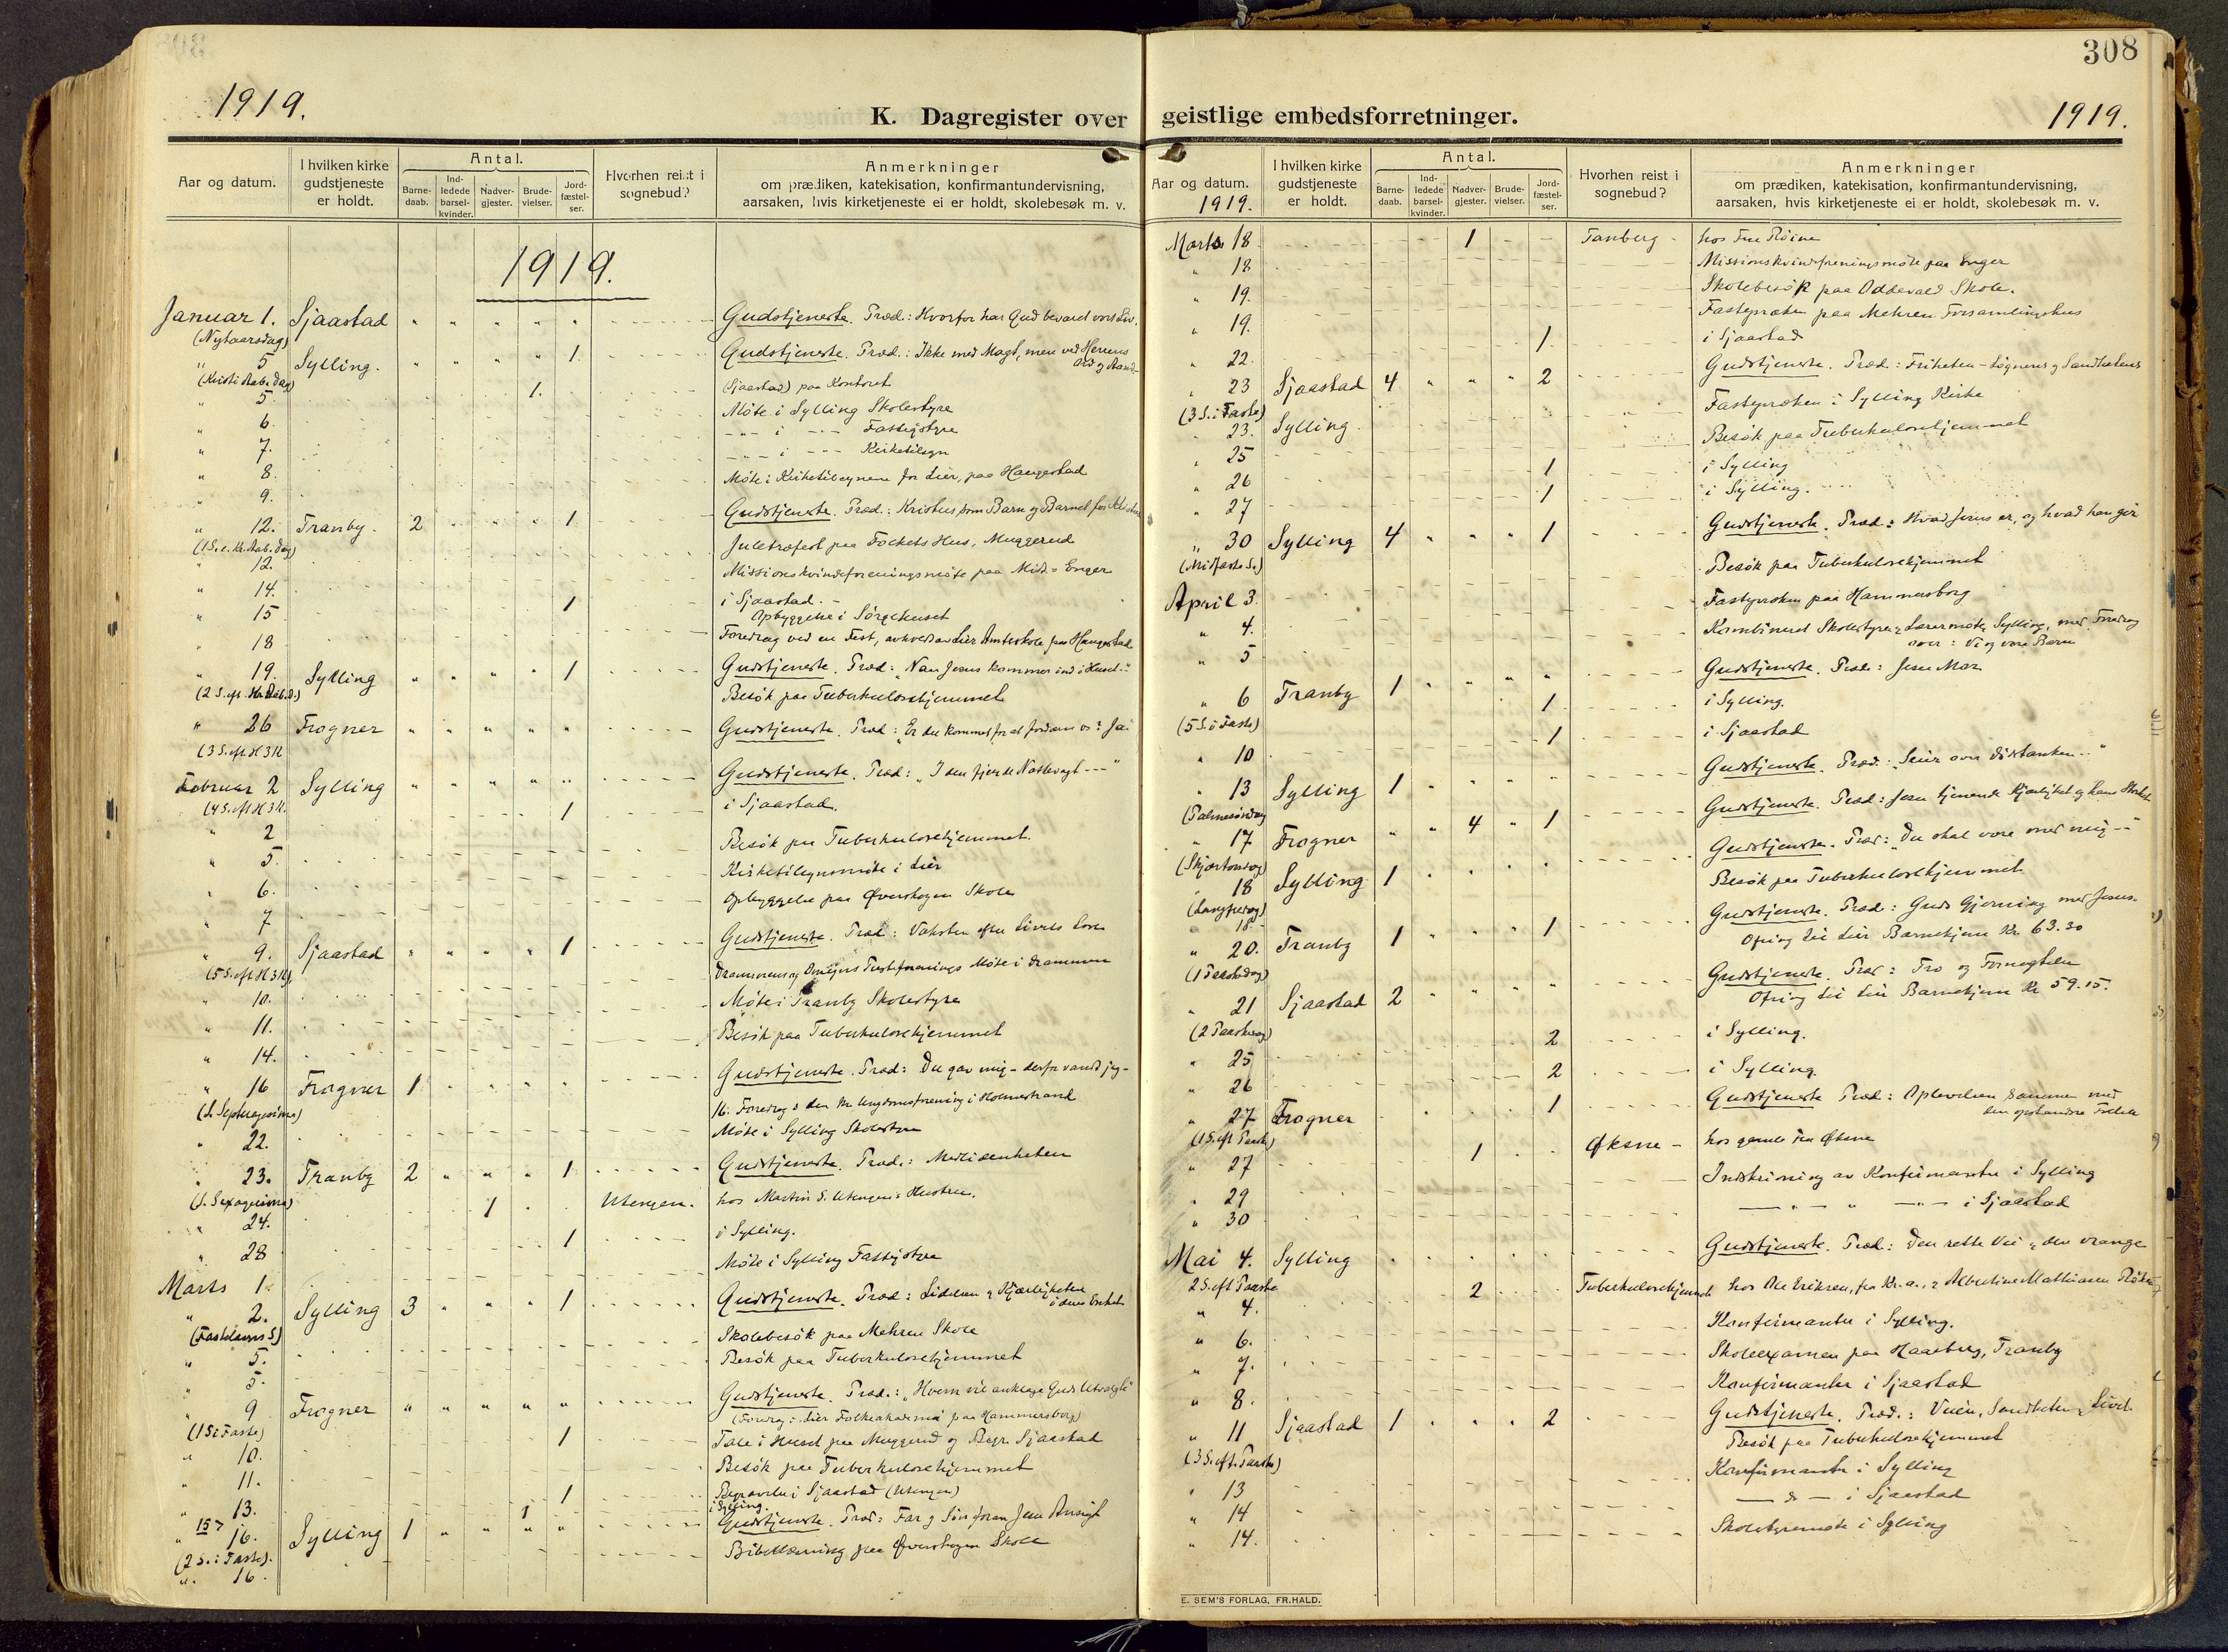 308
1919.
K. Dagregister over geistlige embedsforretninger.
1919.
Aar og datum.
I hvilken kirke gudstjeneste er holdt.
Antal.
Barne-daab.
Ind-ledede barsel-kvinder.
Nadver-gjester.
Brude-vielser.
Jord-fæstel-ser.
Hvorhen reist i sognebud?
Anmerkninger
om prædiken, katekisation, konfirmantundervisning,
aarsaken, hvis kirketjeneste ei er holdt, skolebesøk m. v.
1919.
Januar 1. Sjaastad " " " " " Gudstjeneste. Præd.: Hvorfor har Gud bevaret vort Liv.
(Nytaarsdag)
" 5 Sylling. " " " " 1. Gudstjeneste. Præd.: Ikke med Magt, men ved Herrens Ord og Aand
(Kristi Aab. dag)
" 5 1. (Sjaastad) paa Kontoret
" 6. Møte i Sylling Skolestyre
" 7. -"- i --- Fattigstyre
" 8. -"- i --- Kirketilsyn
" 9. Møte i Kirketilsynene for Lier, paa Haugestad
" 12. Tranby. 2 " " " 1 Gudstjeneste. Præd.: Kristus som Barn og Barnet for
(1 S. e. Kr. Aab. dag)
" 12. Juletræfest paa Folkets Hus, Muggerud
" 14. Missionskvindeforeningsmøte paa Midt-Enger
" 15 1 i Sjaastad.
Opbyggelse i Sørgehuset
" 18 Foredrag ved en Fest, avholdt av Lier Amtsskole paa Haugestad
" 19. Sylling " " " " 1 Gudstjeneste. Præd.: "Naar Jesus kommer ind i Huset-"
(2 S. eft. H. 3 K.)
Besøk paa Tuberkulosehjemmet
" 26 Frogner " " " " " Gudstjeneste. Præd.: "Er du kommet for at fordærve os? Ja!
(3 S. eft. H 3 K
Februar 2 Sylling " " " " " Gudstjeneste. Præd.: "I den fjerde Nattevagt ---"
(4 S. eft H 3 K.
" 2 1 i Sjaastad.
" 5. Besøk paa Tuberkulosehjemmet.
" 6. Kirketilsynsmøte i Lier
" 7 Opbyggelse paa Øverskogen Skole
" 9. Sjaastad " " " " 1 Gudstjeneste. Præd.: Væksten efter Livets Love
(5 S. eft H 3 K)
" 10. Drammens og Omegns Presteforenings Møte i Drammen
" 11. Møte i Tranby Skolestyre
" 14. Besøk paa Tuberkulosehjemmet
" 16 Frogner 1 " " " " Gudstjeneste. Præd.: Du gav mig - derfor vandt jeg -
(S. Septuagesima)
16. Foredrag i den kr. Ungdomsforening i Holmestrand
" 22. Møte i Sylling Skolestyre
" 23. Tranby 2 " " " 1 Gudstjeneste. Præd.: Medlidenheten
(S. Sexagesima)
" 24. 1 Utengen. hos Martin S. Utengens Hustru.
" 28 1 i Sylling.
Marts 1. Møte i Sylling Fattigstyre
" 2. Sylling 3 " " " 1 Gudstjeneste. Præd.: Lidelsen og Kjærligheten i deres Enhet
(Fastelavns S)
" 5. Skolebesøk paa Mehren Skole
" 5. Besøk paa Tuberkulosehjemmet
" 9 Frogner " " " " " Gudstjeneste. Præd.: "Hvem vil anklage Guds Utvalgte"
(1 S. i Faste)
(Foredrag i Lier Folkeakademi paa Hammersborg)
" 10. 1 Tale i Huset paa Muggerud og Begr. Sjaastad
" 11. Besøk paa Tuberkulosehjemmet
" 13. 1 Begravelse i Sjaastad (Utengen)
15> 1 i Sylling.
16. Sylling 1 " " " " Gudstjeneste. Præd.: Far og Søn foran Jesu Ansigt
(2 S. i Faste).
" 16. Bibellæsning paa Øverskogen Skole
Aar og datum.
1919.
I hvilken kirke gudstjeneste er holdt.
Antal.
Barne-daab.
Ind-ledede barsel-kvinder.
Nadver-gjester.
Brude-vielser.
Jord-fæstel-ser.
Hvorhen reist i sognebud?
Anmerkninger
om prædiken, katekisation, konfirmantundervisning,
aarsaken, hvis kirketjeneste ei er holdt, skolebesøk m. v.
Marts 18 1 Tanberg - hos Fru
" 18 Missionskvindeforeningsmøte paa Enger
" 19. Skolebesøk paa Oddevald Skole.
" 19. Fasteprædken paa Mehren Forsamlingshus
" 22. 1 i Sjaastad
" 23 Sjaastad 4 " " " 2 Gudstjeneste. Præd.: Friheten - Løgnens og Sandhetens
(3 S. i Faste)
" 23. Sylling. Fasteprædken i Sylling Kirke
" 25 Besøk paa Tuberkulosehjemmet
" 26 1 i Sylling
" 27 1 i Sylling.
" 30 Sylling 4 " " " 1 Gudstjeneste. Præd.: Hvad Jesus er, og hvad han gir
(Midfaste S.)
April 3. Besøk paa Tuberkulosehjemmet
" 4. Fasteprædken paa Hammersborg
" 5 Kombineret Skolestyre og Lærermøte, Sylling, med Foredrag
over: Vi og vore Barn
" 6 Tranby 1 " " " " Gudstjeneste. Præd.: Jesu Mor
(5 S. i Faste)
1 i Sylling.
" 10 1 i Sjaastad
" 13 Sylling 1 " " " " Gudstjeneste. Præd.: "Seier over Dødstanken --"
(Palmesøndag
" 17 Frogner " " 4 " 1 Gudstjeneste. Præd.: Jesu tjenende Kjærlighet og hans
(Skjærtorsdag)
" 18 Sylling 1 " " " " Gudstjeneste. Præd.: "Du skal være med mig --"
(Langfredag)
" 18. Besøk paa Tuberkulosehjemmet
" 20. Tranby 1 " " " 1 Gudstjeneste. Præd.: Guds Gjerning med Jesus.
(1 Paaskedag)
Ofring til Lier Barnehjem Kr. 63.30
" 21 Sjaastad 2 " " " " Gudstjeneste. Præd.: Tro og Fornegtelse
(2 Paaskedag)
Ofring til Lier Barnehjem Kr 59.15.
" 25 2 i Sylling.
" 26 2 i Sylling.
" 27 Frogner 1 Gudstjeneste Præd.: Oplevelsen sammen med
den opstandne Frelser
(1 S. eft Paaske)
" 27 1 Øksne - hos gamle Fru Øksne
" 29 Indskrivning av Konfirmanter i Sylling
" 30 — " — " — " — i Sjaastad
Mai 4. Sylling Gudstjeneste. Præd.: Den rette Vei og den vrange
2 S. eft Paaske
" 4. 2 Tuberkulosehjemmet hos Ole Eriksen, fra Kr.a., og Albertine Mathiasen Røken
" 6. Konfirmanter i Sylling.
" 7. Skoleexamen paa Haasberg, Tranby
" 8. Konfirmanter i Sjaastad
" 11 Sjaastad 1 " " " 2 Gudstjeneste. Præd.: Veien, Sandheten og Livet
(3 S. eft. Paaske)
Besøk paa Tuberkulosehjemmet
" 13 Konfirmanter i Sylling
" 14 — do — i Sjaastad
" 14. Skolestyremøte i Sylling
E. SEM'S FORLAG, FR.HALD.